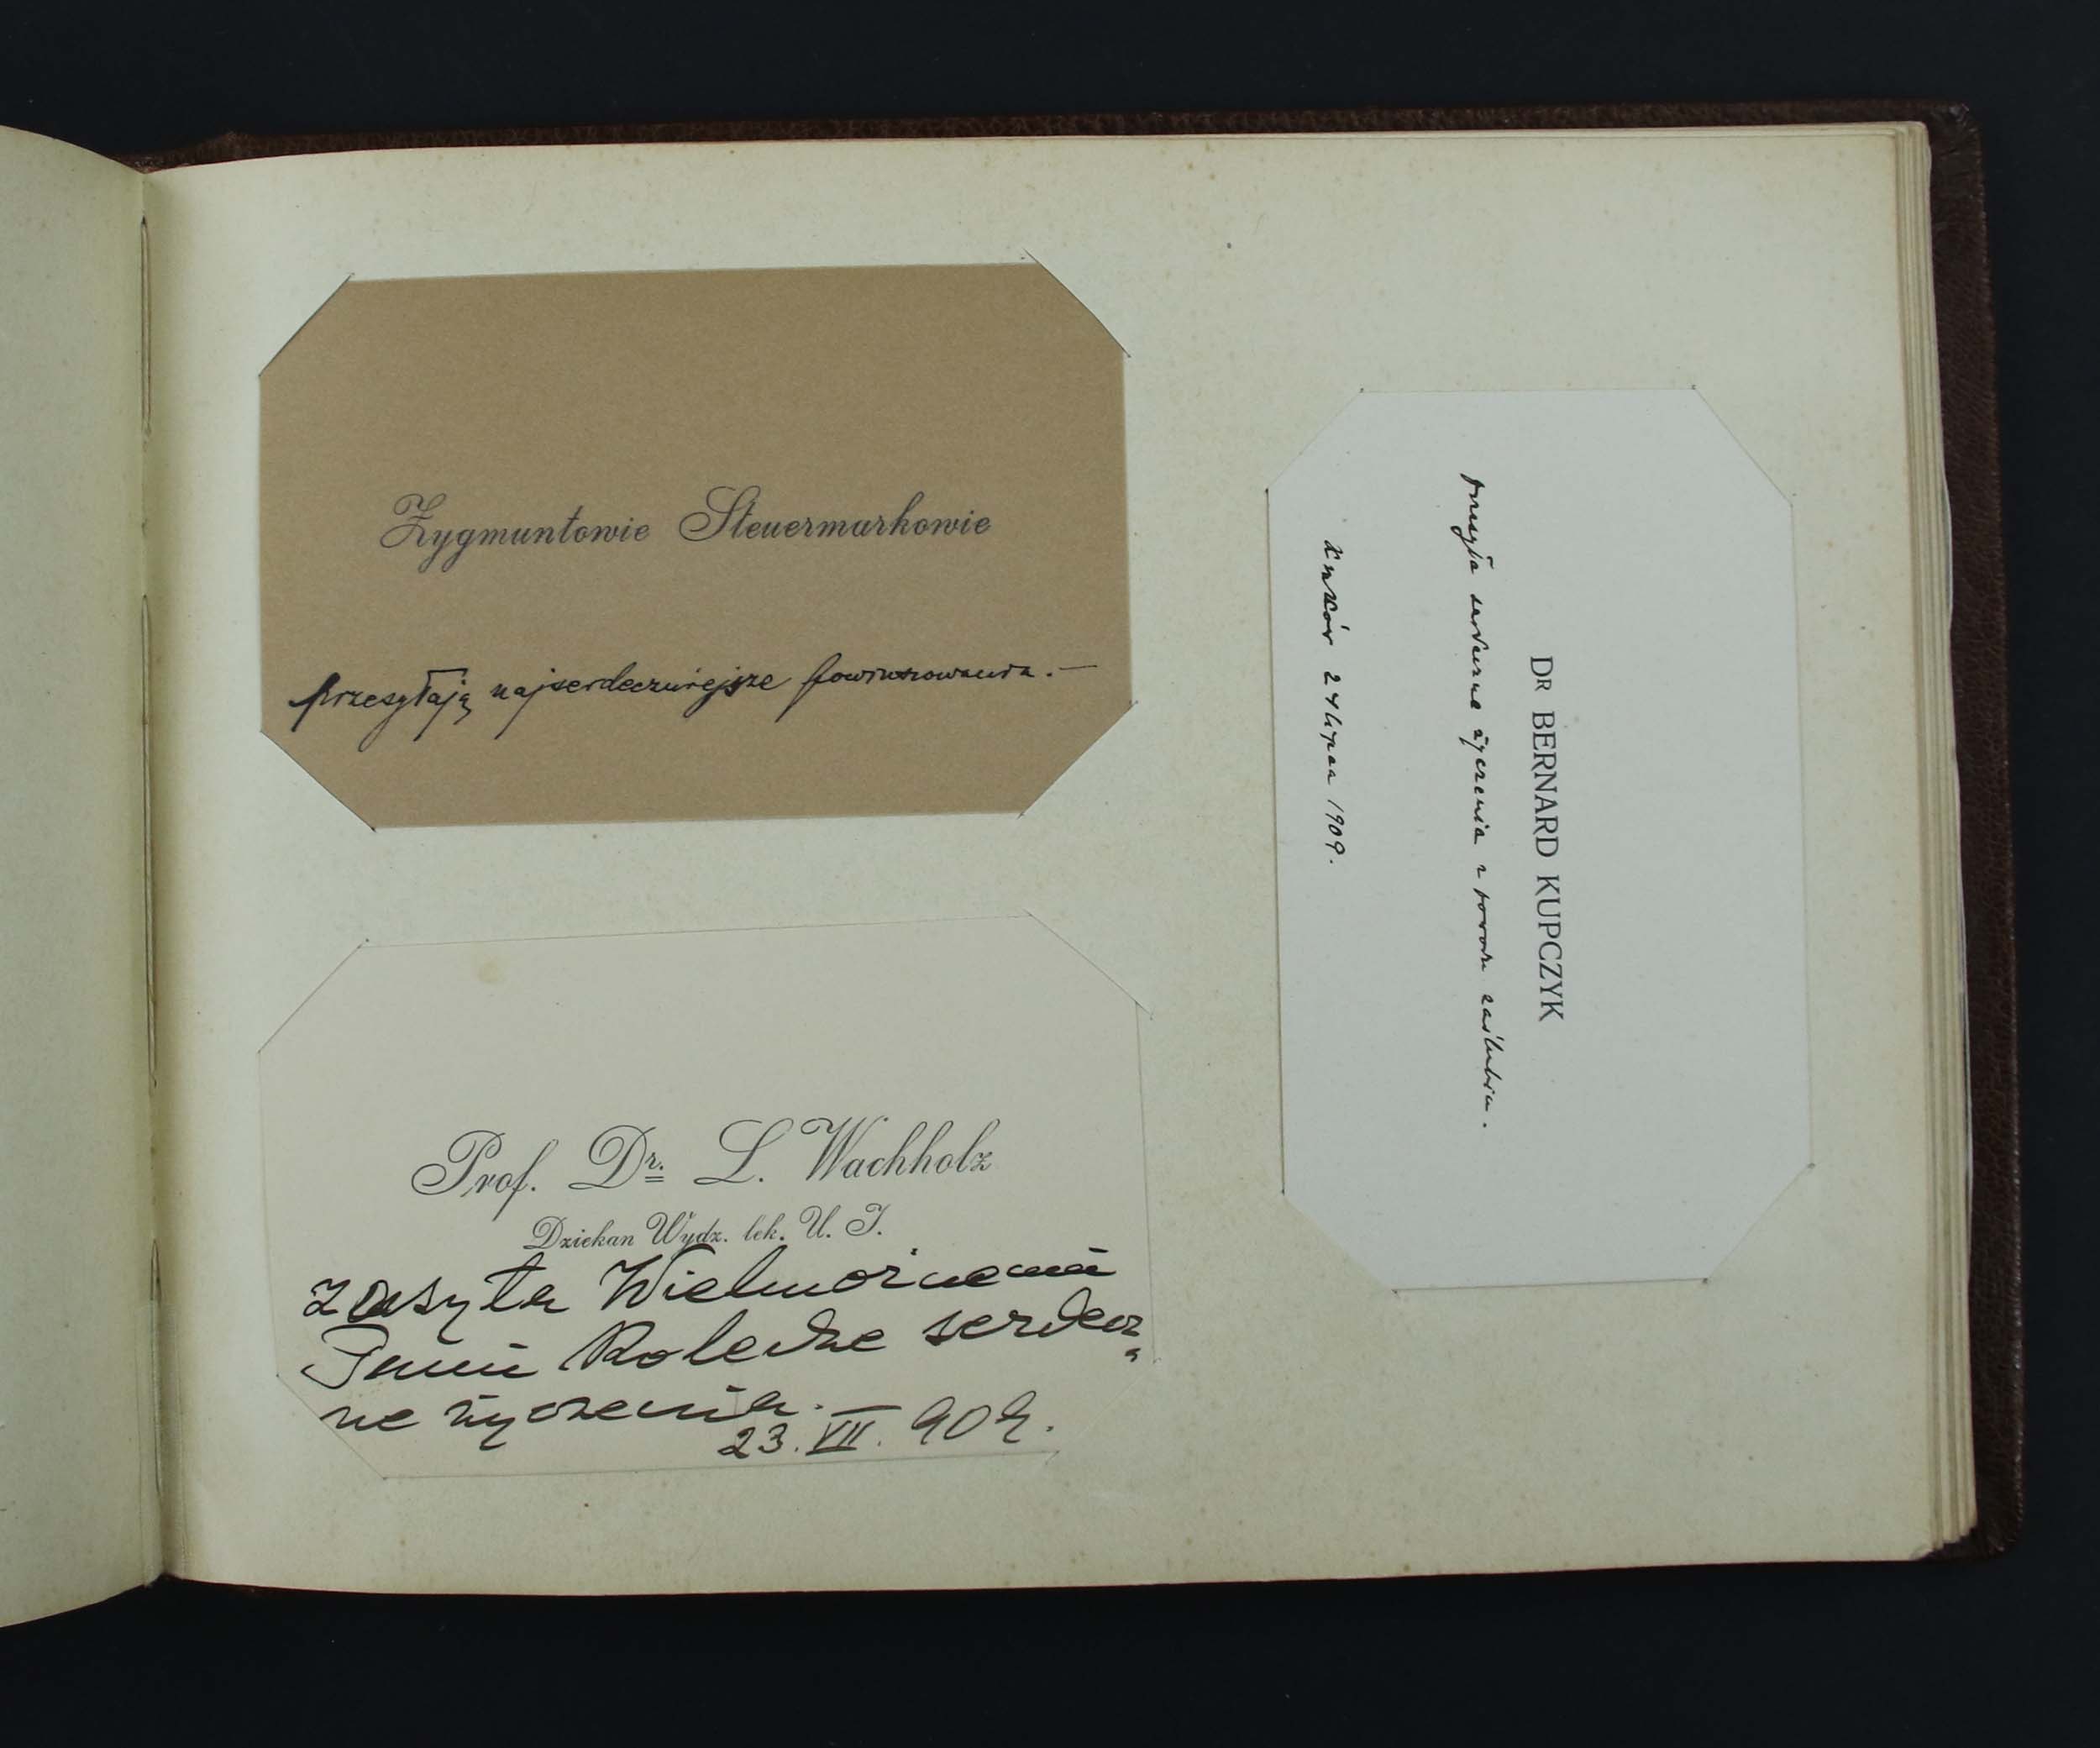 Zygmuntowie Steuermarkowie
przesyłają najserdeczniejsze powinszowania. –
Prof. Dr. L. Wachholz
Dziekan Wydz. lek. U. J.
zasyła Wielmożnemu
Panu Koledze serdecz„
ne życzenia. –
23. VII. 909.
DR BERNARD KUPCZYK
przesyła serdeczne życzenia z powodu zaślubin.
24 lipca 1909.